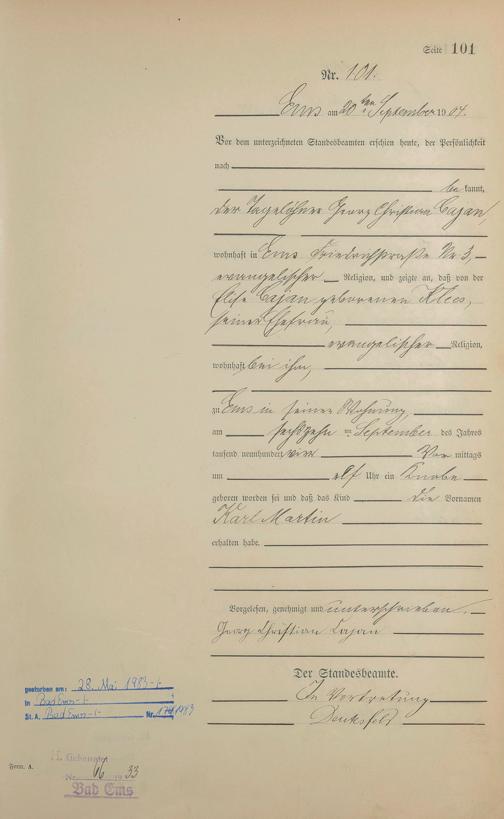 Seite 101
Nr. 101.
Ems am 20ten September 1904.
Vor dem unterzeichneten Standesbeamten erschien heute, der Persönlichkeit
nach
bekannt,
der Tagelöhner Georg Christian Cajan,
wohnhaft in Ems Friedrichstraße Nr. 3,
evangelischer Religion, und zeigte an, daß von der
Elise Cajan geborenen Klees,
seiner Ehefrau,
evangelischer Religion,
wohnhaft bei ihm,
zu Ems in seiner Wohnung,
am sechszehn = September des Jahres
tausend neunhundert vier Vor mittags
um elf Uhr ein Knabe
geboren worden sei und daß das Kind die Vornamen
Karl Martin
erhalten habe.
Vorgelesen, genehmigt und unterschrieben.
Georg Christian Cajan
Der Standesbeamte.
In Vertretung
gestorben am: 28. Mai 1983
in Bad Ems
St. A. Bad Ems Nr.
Form. A.
Nr. 66 1933
Bad Ems